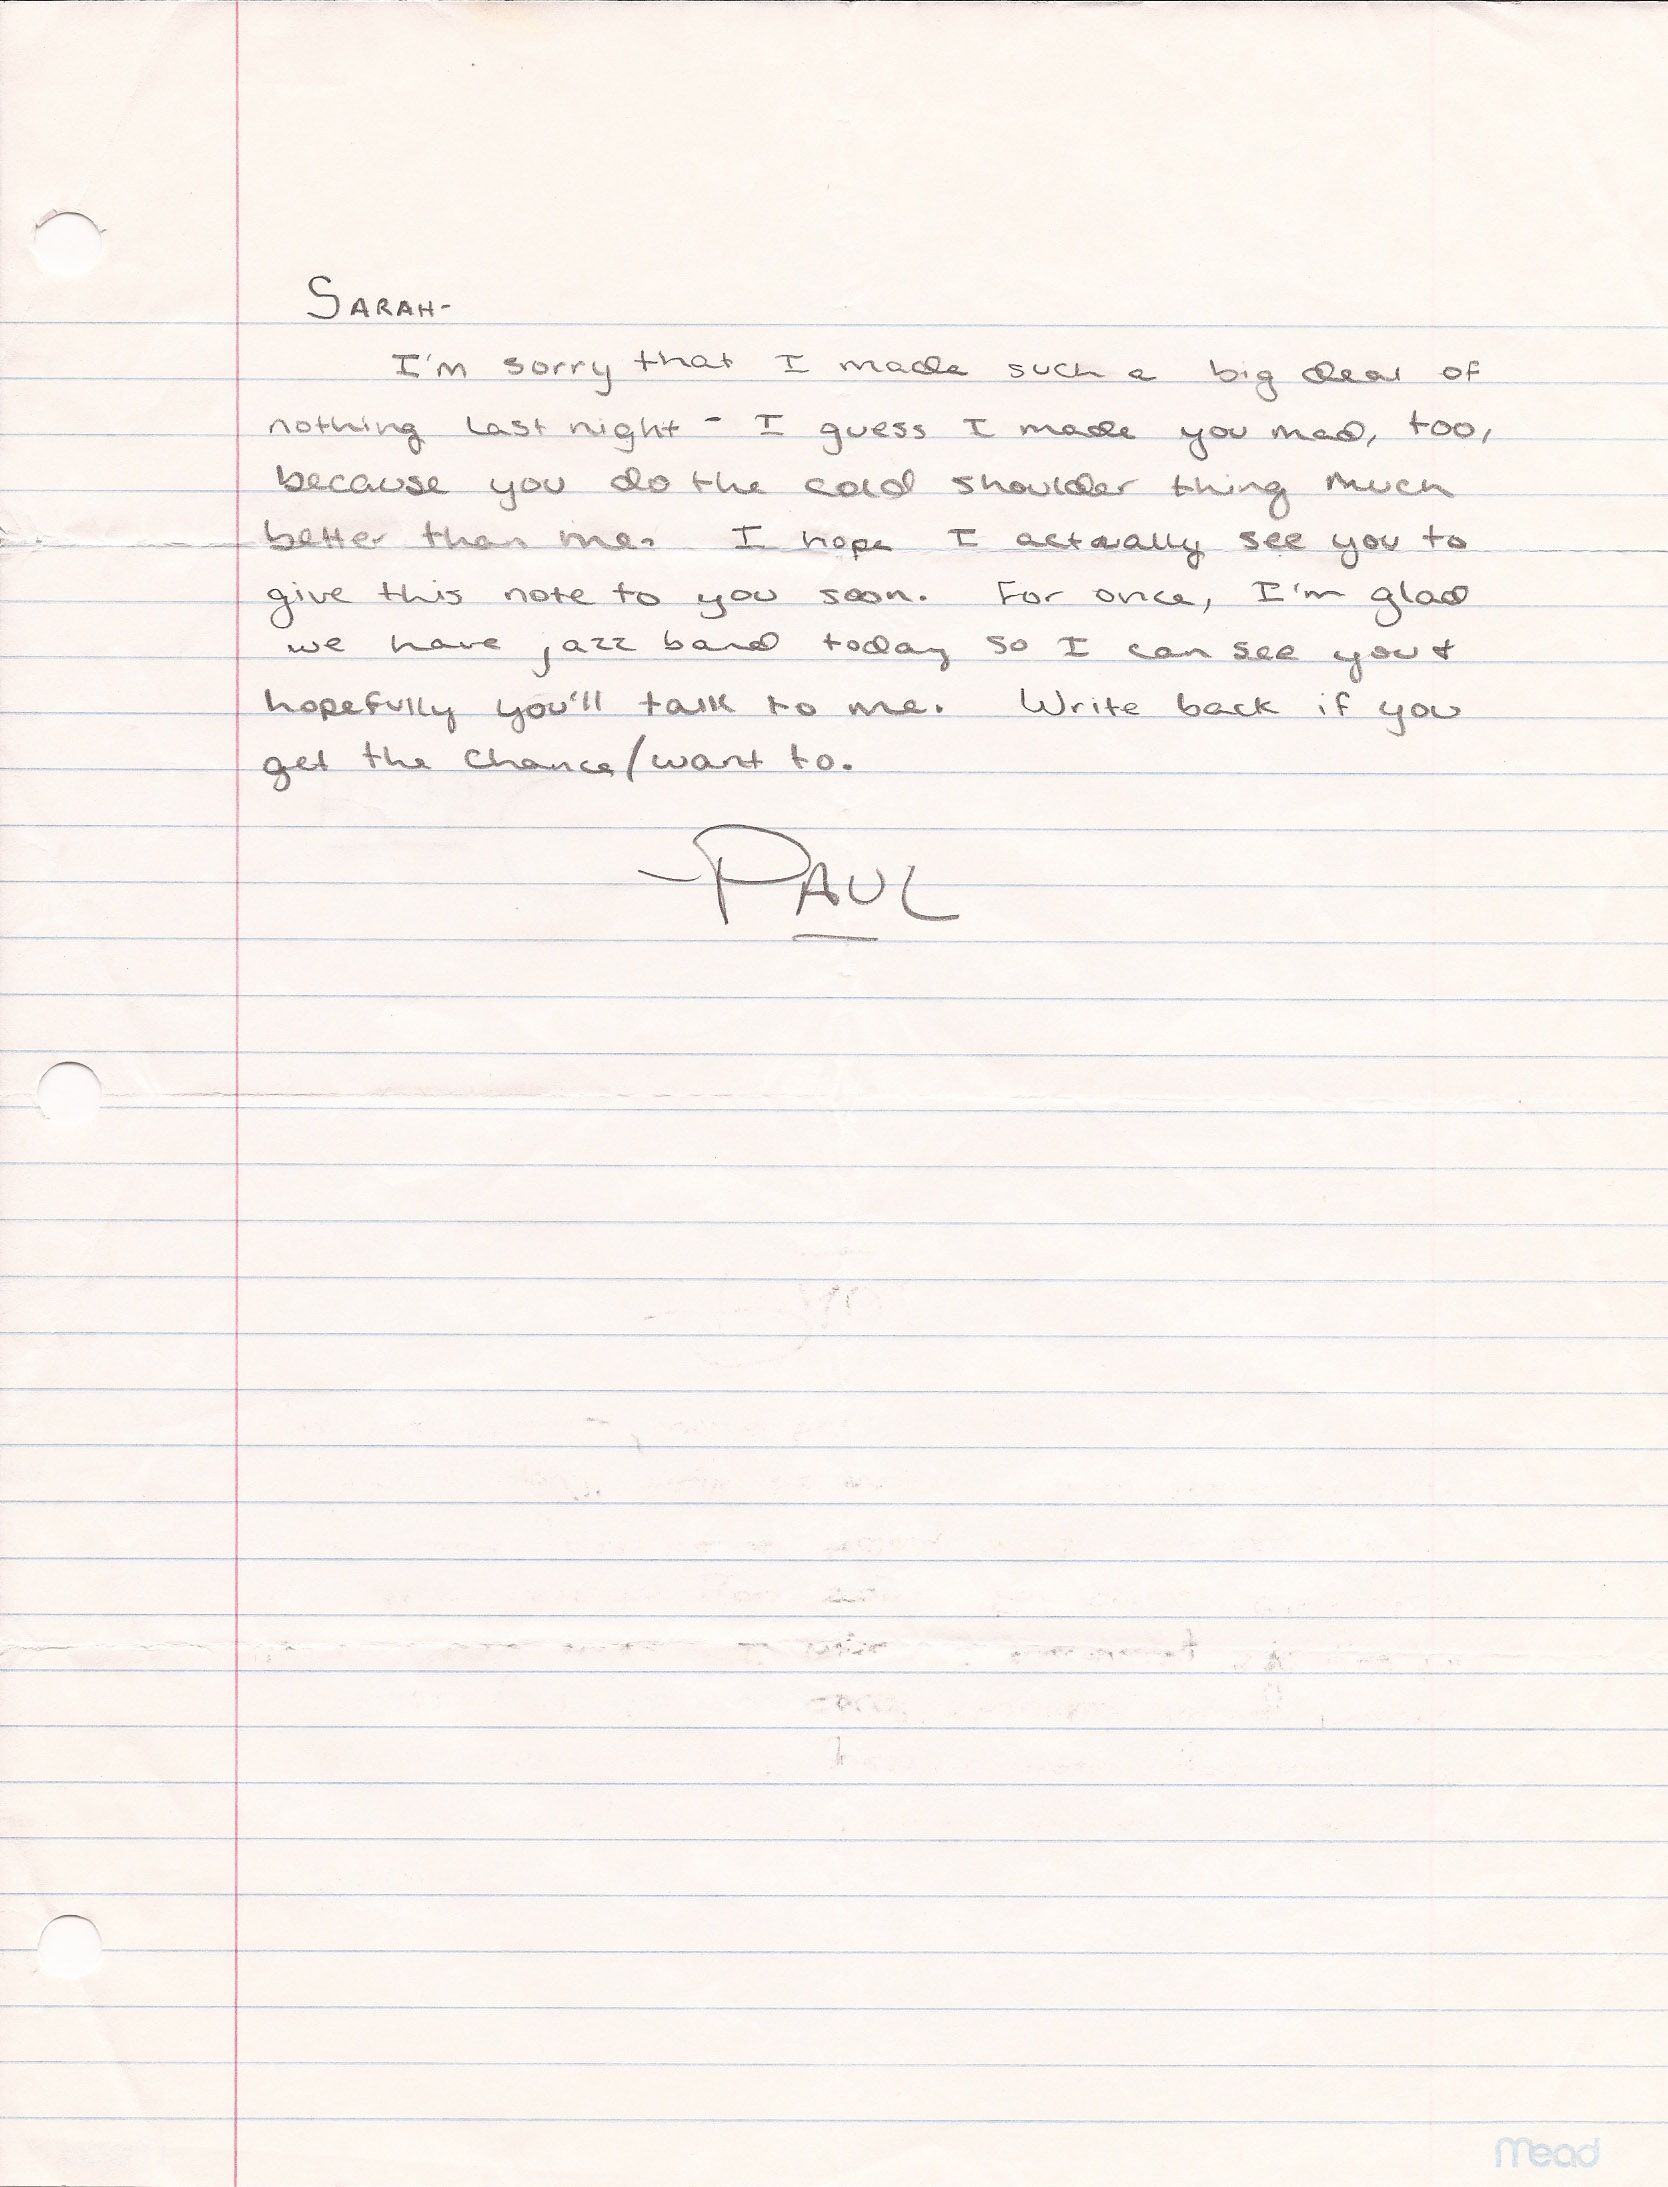 SARAH-
I'm sorry that I made such a big deal of
nothing last night - I guess I made you mad, too,
because you do the cold shoulder thing much
better than me. I hope I actually see you to
give this note to you soon. For once, I'm glad
we have jazz band today so I can see you &
hopefully you'll talk to me. Write back if you
get the chance/want to.
-PAUL
Mead